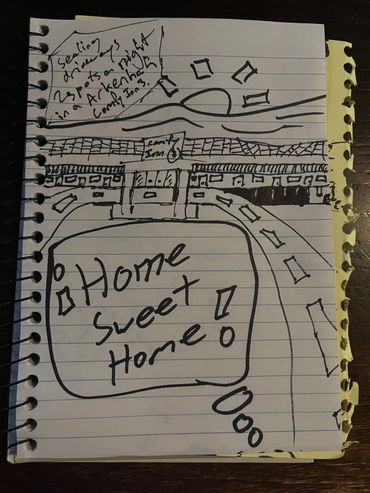 sealing
driveways
2 spots a night
in a Arkenham
Comfy Inn 3.
Inn 3
Home
Sweet
Home